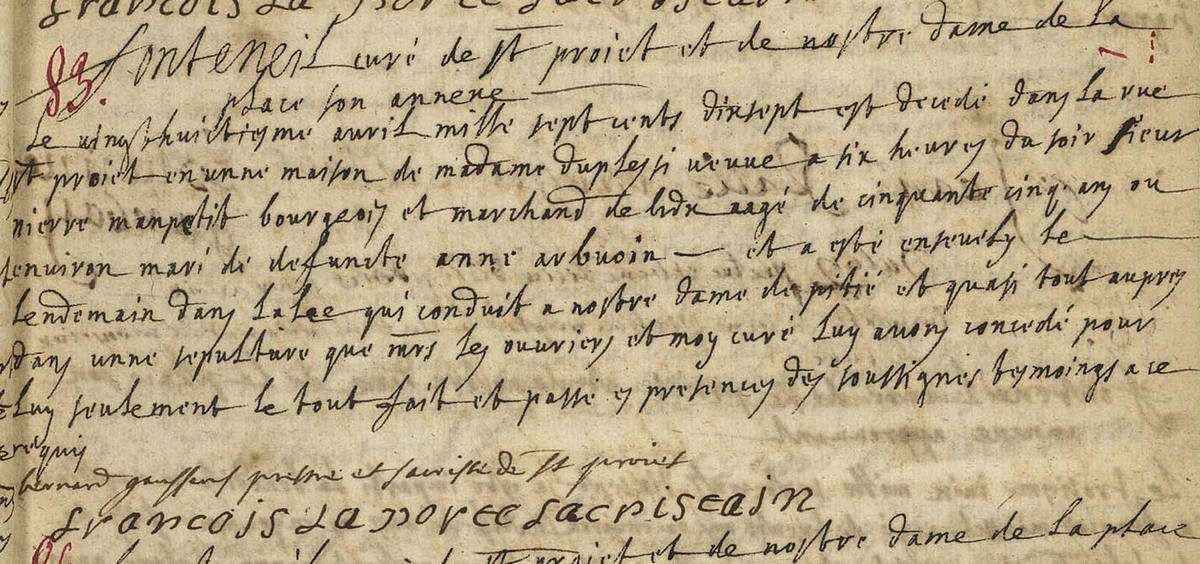 francois La porte Sacristain
83. fonteneil curé de St projet et de nostre dame de La
place son annexe
Le vingt huictiesme avril mille sept cents dixsept est decedé dans La rue
St projet en unne maison de madame duplessi veuve a six heures du soir sieur
pierre manpetit bourgeois et marchand de bidx aagé de cinquante cinq ans ou
environ mari de defuncte anne arbuoin et a esté ensevely le
Lendemain dans La qui conduit a nostre dame de pitié et quasi tout aupres
dans unne sepulture que mrs les ouvriers et moy curé Luy avons concedé pour
Luy seulement le tout fait et passé es presences des soussignes tesmoings a ce
requis
bernard gaussens prestre et sacriste de St projet
francois La porte Sacristain
St projet et de nostre dame de La place